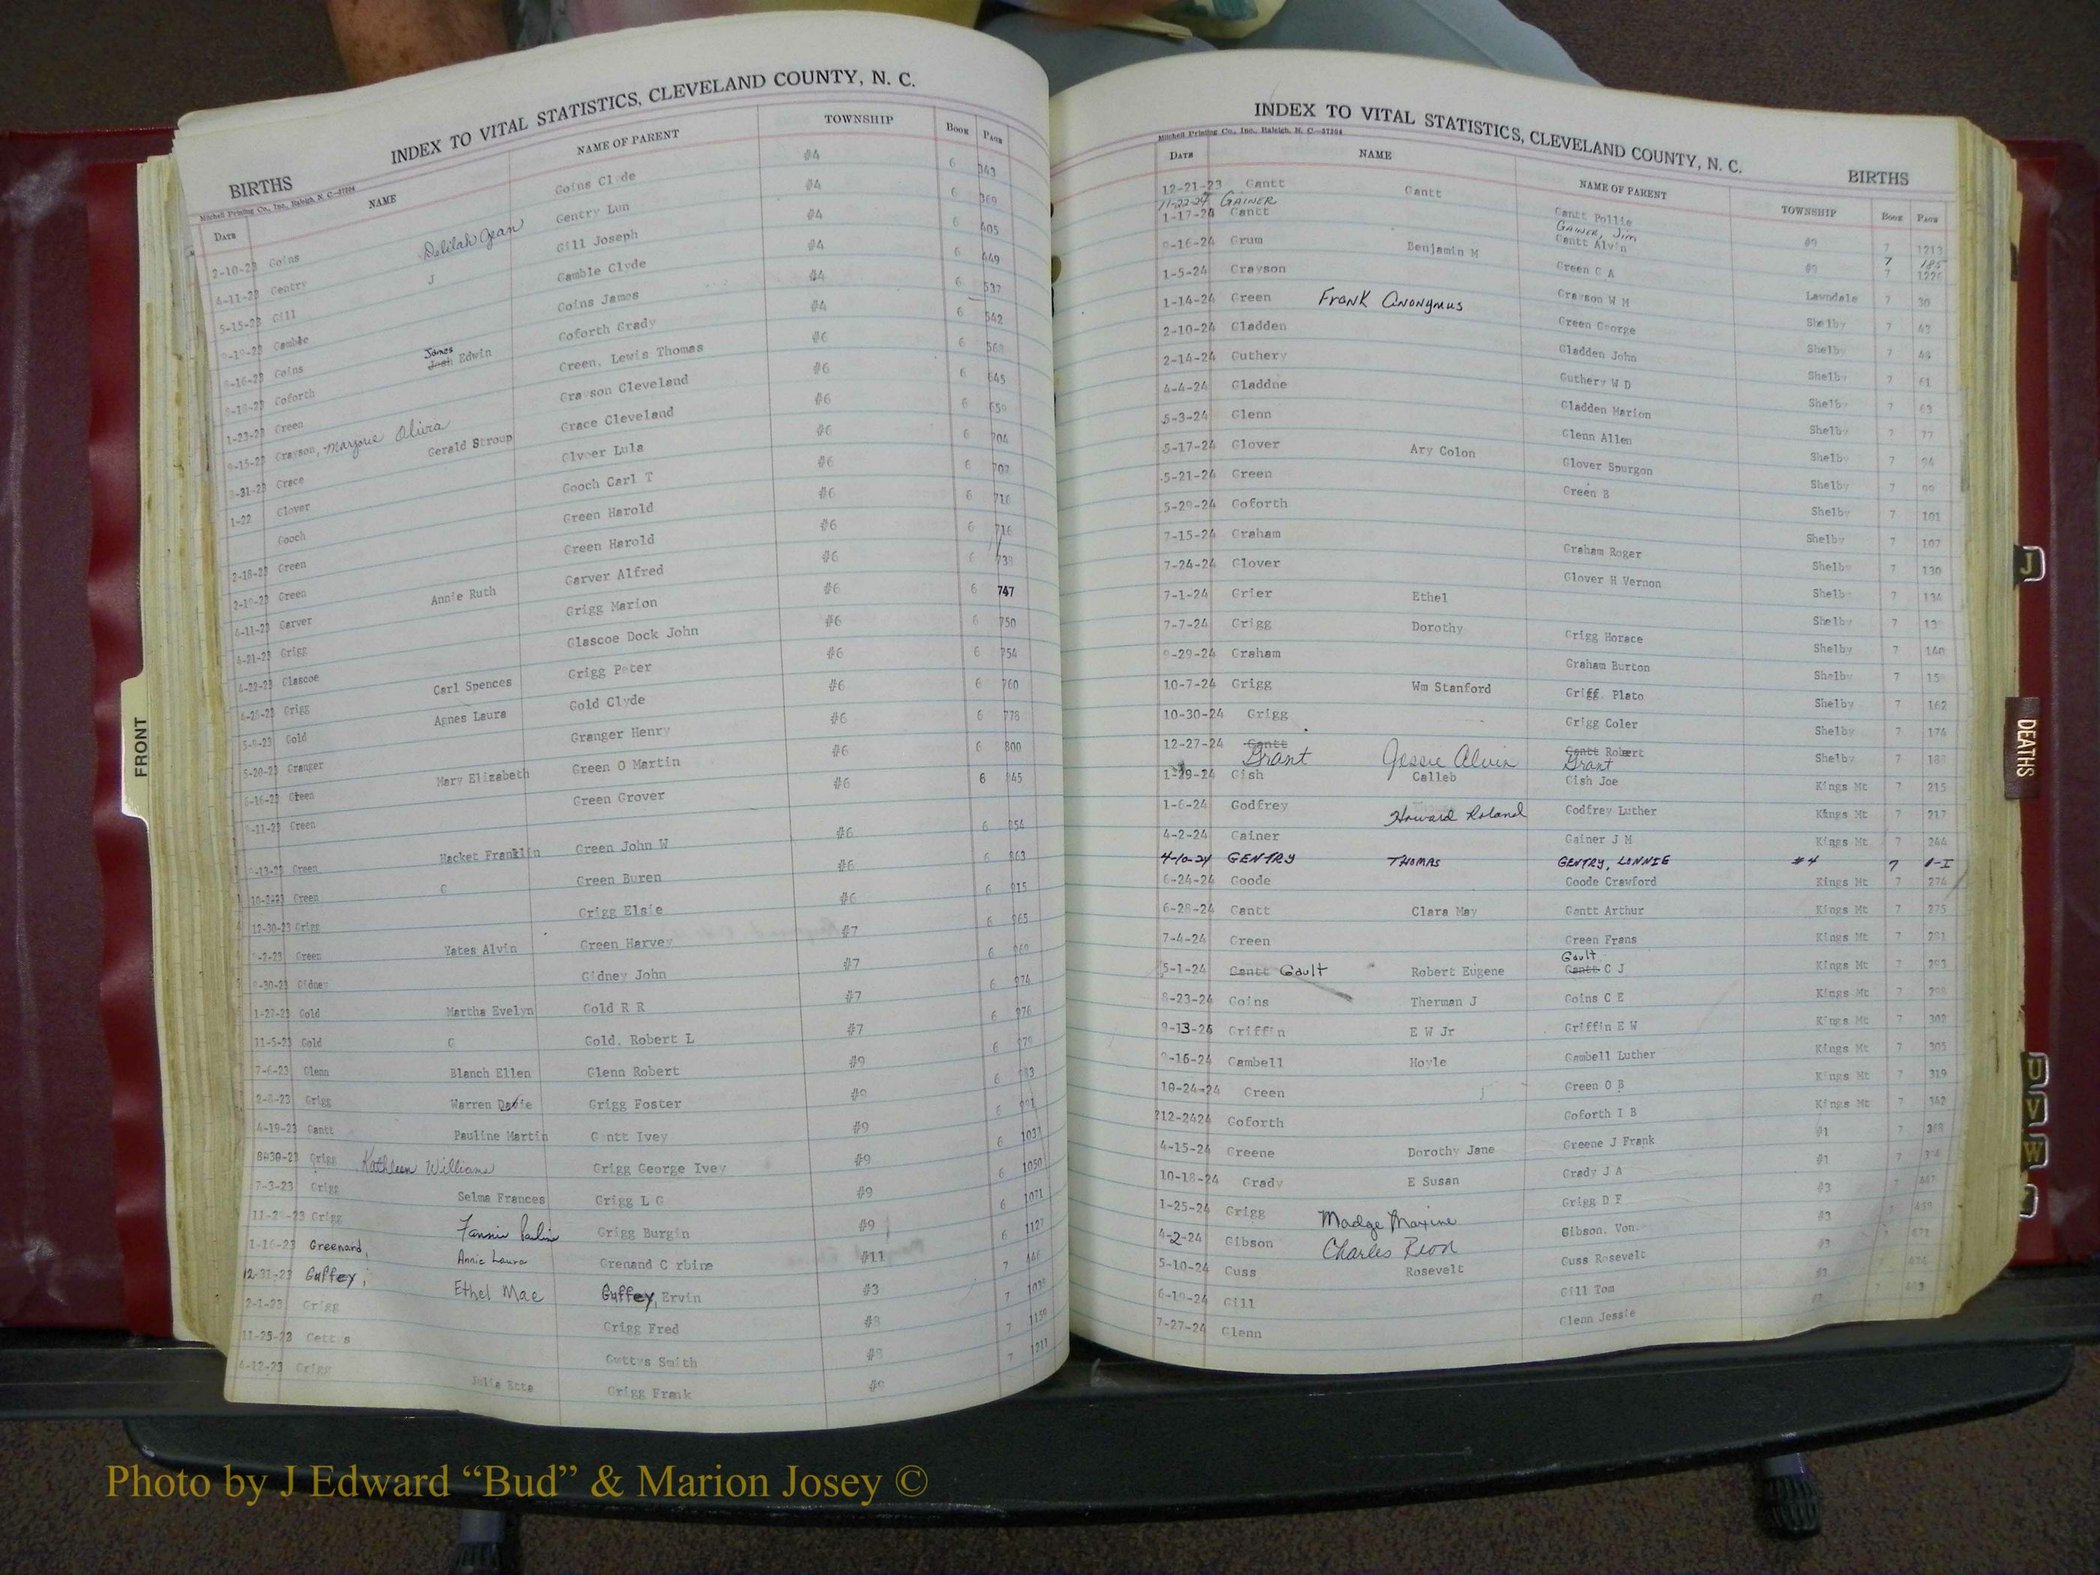 INDEX TO VITAL STATISTICS, CLEVELAND COUNTY, N. C.
BIRTHS
Mitchell Printing Co., Inc., Raleigh, N. C.—57204
DATE NAME NAME OF PARENT TOWNSHIP BOOK PAGE
2-10-23 Goins Delilah Jean Goins Cl de #4 6 343
4-11-23 Gentry J Gentry Lun #4 6 369
5-15-23 Gill Gill Joseph #4 6 405
Gamble Gamble Clyde #4 6 449
Goins Goins James #4 6 537
Goforth James Edwin Goforth Grady #4 6 542
1-23-23 Green Green, Lewis Thomas #6 6
Grayson, Marjorie Olivia Grayson Cleveland #6 6 645
Grace Gerald Stroup Grace Cleveland #6 6 659
1-22 Glover Glvoer Lula #6 6 704
Gooch Gooch Carl T #6 6 707
2-18-23 Green Green Harold #6 6 716
2-19-23 Green Green Harold #6 6 716
4-11-23 Garver Annie Ruth Garver Alfred #6 6 738
4-21-23 Grigg Grigg Marion #6 6 747
4-22-23 Glascoe Glascoe Dock John #6 6 750
Grigg Carl Spences Grigg Peter #6 6 754
Gold Agnes Laura Gold Clyde #6 6 760
5-20-23 Granger Granger Henry #6 6 778
6-16-23 Green Mary Elizabeth Green O Martin #6 6 800
Green Green Grover #6 6 845
Green Hacket Franklin Green John W #6 6 854
Green G Green Buren #6 6 863
12-30-23 Grigg Grigg Elsie #6 6 915
Green Yates Alvin Green Harvey #7 6 965
Gidney Gidney John #7 6 969
1-27-23 Gold Martha Evelyn Gold R R #7 6 974
11-5-23 Gold G Gold, Robert L #7 6 976
7-6-23 Glenn Blanch Ellen Glenn Robert #9 6 979
2-8-23 Grigg Warren Grigg Foster #9 6 983
4-19-23 Gantt Pauline Martin G ntt Ivey #9 6 991
8030-23 Grigg Kathleen Williams Grigg George Ivey #9 6 1037
7-3-23 Grigg Selma Frances Grigg L G #9 6 1050
Grigg Fannie Grigg Burgin #9 6 1071
1-16-23 Greenard, Annie Laura Grenand C rbine #11 6 1127
12-31-23 Guffey, Ethel Mae Guffey, Ervin #3 7 446
2-1-23 Grigg Grigg Fred #8 7
11-25-23 Gett s Gettys Smith #8 7 1159
4-12-23 Grigg Julia Etta Grigg Frank #9 7 1211
INDEX TO VITAL STATISTICS, CLEVELAND COUNTY, N. C.
BIRTHS
Mitchell Printing Co., Inc., Raleigh, N. C.—57204
DATE NAME NAME OF PARENT TOWNSHIP BOOK PAGE
12-21-23 Gantt Gantt Gantt Pollie #9 7 1213
11-22-24 GAINER GAINER, Jim 7 185
1-17-24 Gantt Gantt Alvin #9 7 1226
Grum Benjamin M Green G A Lawndale 7 30
1-5-24 Grayson Grayson W M Shelby 7 43
1-14-24 Green Frank Anonymus Green George Shelby 7
2-10-24 Gladden Gladden John Shelby 7 61
2-14-24 Guthery Guthery W D Shelby 7 63
4-4-24 Gladdne Gladden Marion Shelby 7 77
5-3-24 Glenn Glenn Allen Shelby 7 94
5-17-24 Glover Ary Colon Glover Spurgon Shelby 7 99
5-21-24 Green Green B Shelby 7 101
5-29-24 Goforth Shelby 7 107
7-15-24 Graham Graham Roger Shelby 7 130
7-24-24 Glover Glover H Vernon Shelby 7 134
7-1-24 Grier Ethel Shelby 7
7-7-24 Grigg Dorothy Grigg Horace Shelby 7 140
9-29-24 Graham Graham Burton Shelby 7
10-7-24 Grigg Wm Stanford Grigg, Plato Shelby 7 162
10-30-24 Grigg Grigg Coler Shelby 7 174
12-27-24 Gantt Grant Jessie Alvin Gantt Robert Grant Shelby 7
1-29-24 Gish Calleb Gish Joe Kings Mt 7 215
1-6-24 Godfrey Howard Roland Godfrey Luther Kings Mt 7 217
4-2-24 Gainer Gainer J M Kings Mt 7 244
4-10-24 GENTRY THOMAS GENTRY, LONNIE #4 7
6-24-24 Goode Goode Crawford Kings Mt 7 274
6-28-24 Gantt Clara May Gantt Arthur Kings Mt 7 275
7-4-24 Green Green Frans Kings Mt 7 281
5-1-24 Gantt Gault Robert Eugene Gault Gantt C J Kings Mt 7 293
8-23-24 Goins Therman J Goins C E Kings Mt 7 298
9-13-24 Griffin E W Jr Griffin E W Kings Mt 7 302
9-16-24 Gambell Hoyle Gambell Luther Kings Mt 7 305
10-24-24 Green J Green O B Kings Mt 7 319
?12-2424 Goforth Goforth I B Kings Mt 7 342
4-15-24 Greene Dorothy Jane Greene J Frank #1 7 368
10-18-24 Grady E Susan Grady J A #1 7
1-25-24 Grigg Madge Maxine Grigg D F #3
4-2-24 Gibson Charles Reon Gibson, Von. #3
5-10-24 Guss Rosevelt Guss Rosevelt #3
6-19-24 Gill Gill Tom #3
7-27-24 Glenn Glenn Jessie
FRONT
J
DEATHS
U
V
W
Photo by J Edward “Bud” & Marion Josey ©